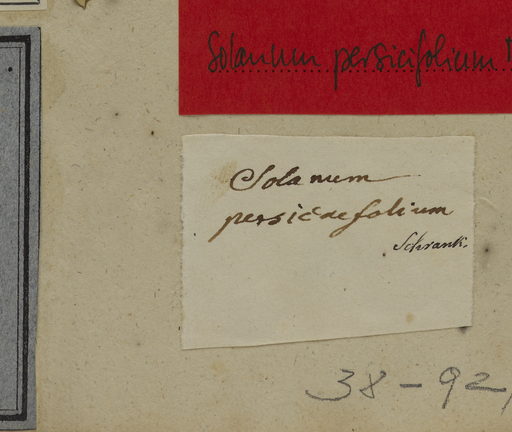 Solanum persicifolium
Solanum
persicaefolium
Schrank.
38-92